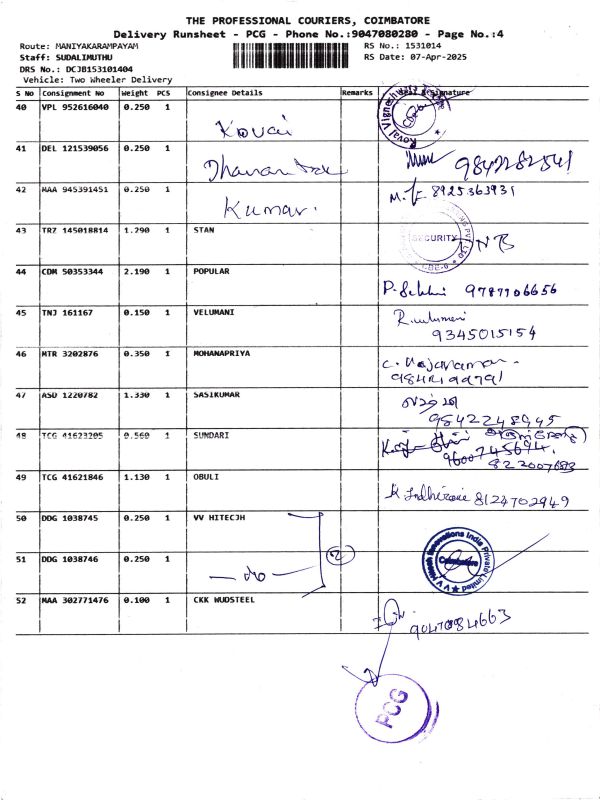 THE PROFESSIONAL COURIERS, COIMBATORE
Delivery Runsheet - PCG - Phone No.:9047080280 - Page No.:4
Route: MANIYAKARAMPAYAM RS No.: 1531014
Staff: SUDALIMUTHU RS Date: 07-Apr-2025
DRS No.: DCJB153101404
Vehicle: Two Wheeler Delivery
S No Consignment No Weight PCS Consignee Details Remarks Signature
40 VPL 952616040 0.250 1 Kovai Royal Vignesh
41 DEL 121539056 0.250 1 9842282541
42 MAA 945391451 0.250 1 Kumar. 8925363931
43 TRZ 145018814 1.290 1 STAN SECURITY
44 CDM 50353344 2.190 1 POPULAR 9787706656
45 TNJ 161167 0.150 1 VELUMANI R. velumani
9345015154
46 MTR 3202876 0.350 1 MOHANAPRIYA
47 ASD 1220782 1.330 1 SASIKUMAR
9842248945
48 TCG 41623205 0.560 1 SUNDARI
9600745694.
49 TCG 41621846 1.130 1 OBULI 8124702949
50 DDG 1038745 0.250 1 VV HITECJH
51 DDG 1038746 0.250 1 — do — 2 V V Hitech Innovations India Private Limited Coimbatore
52 MAA 302771476 0.100 1 CKK WUDSTEEL
9047084663
PCG